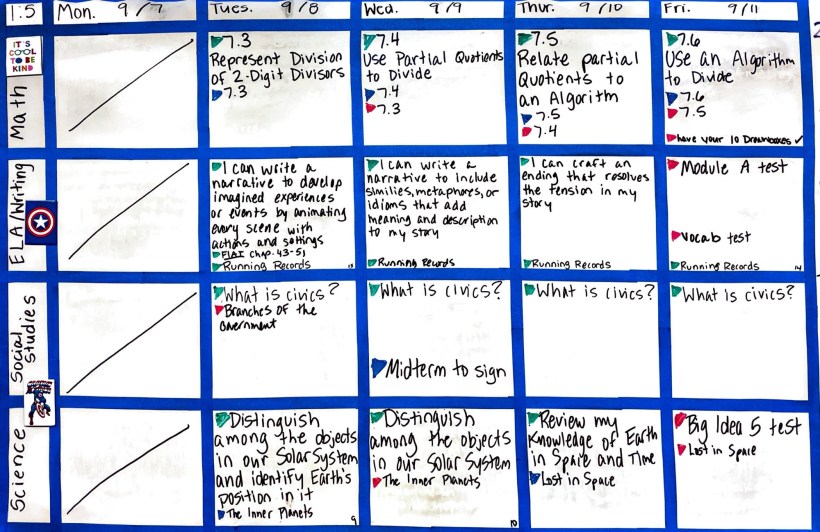 1:5
Mon. 9/7
Tues. 9/8
Wed. 9/9
Thur. 9/10
Fri. 9/11
IT'S
COOL
TO BE
KIND
Math
7.3
Represent Division
of 2-Digit Divisors
7.3
7.4
Use Partial Quotients
to Divide
7.4
7.3
7.5
Relate partial
Quotients to
an Algorithm
7.5
7.4
7.6
Use an Algorithm
to Divide
7.6
7.5
have your 10 Drawboxes ✓
ELA/Writing
I can write a
narrative to develop
imagined experiences
or events by animating
every scene with
actions and settings
FIAT Chap. 43-51
Running Records
13
I can write a
narrative to include
similies, metaphores, or
idioms that add
meaning and description
to my story
Running Records
I can craft an
ending that resolves
the tension in my
story
Running Records
Module A test
Vocab test
Running Records
14
Social
Studies
What is civics?
Branches of the
Government
What is civics?
Midterm to sign
What is civics?
What is civics?
Science
Distinguish
among the objects
in our Solar System
and identify Earth's
position in it
The Inner Planets
9
Distinguish
among the objects
in our Solar System
The Inner Planets
10
Review my
Knowledge of Earth
in Space and Time
Lost in Space
Big Idea 5 test
Lost in Space